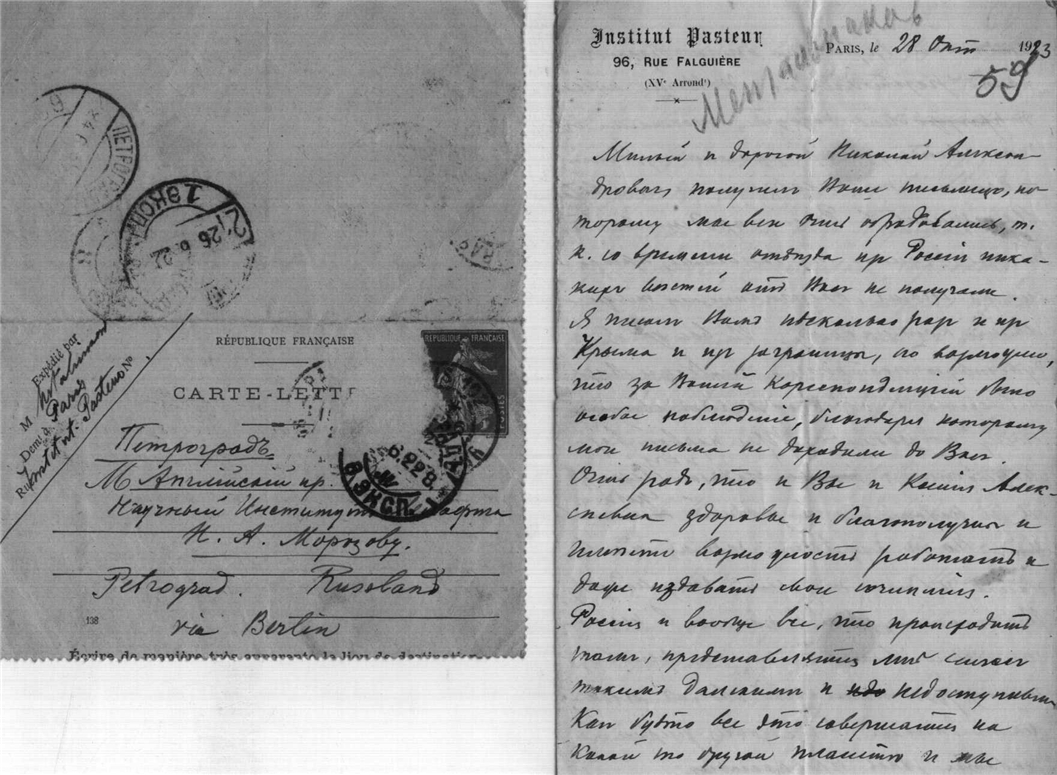 ПЕТРОГРА
1 ЭКСП.
26 6.22
RÉPUBLIQUE FRANÇAISE
RÉPUBLIQUE FRANÇAISE
POSTES
CARTE-LETT
Expédié par
M
Paris
Institut Pasteur
N°
Петроградъ
М Английский пр.
Научный Институт
Н. А. Морозову.
Petrograd. Russland
via Berlin
138
Écrire de manière très apparente le lieu de destination
6 ЭКСП.
Institut Pasteur
96, RUE FALGUIÈRE
(XVe Arrondt)
PARIS, le 28 Окт 1923
59
Метальников
Милый и дорогой Николай Алексан-
дрович, получил Ваше письмецо, ко-
торому мы все очень обрадовались, т.
к. со времени отъезда из России ника-
ких вестей от Вас не получали.
Я писал Вам несколько раз и из
Крыма и из заграницы, но возможно,
что за Вашей корреспонденцией было
особое наблюдение, благодаря которому
мои письма не доходили до Вас.
Очень рад, что и Вы и Ксения Алек-
сеевна здоровы и благополучны и
имеете возможность работать и
даже издавать свои сочинения.
Россия и вообще все, что происходит
там, представляется мне
таким далеким и недоступным
Как будто все это совершается на
какой то другой планете и мы